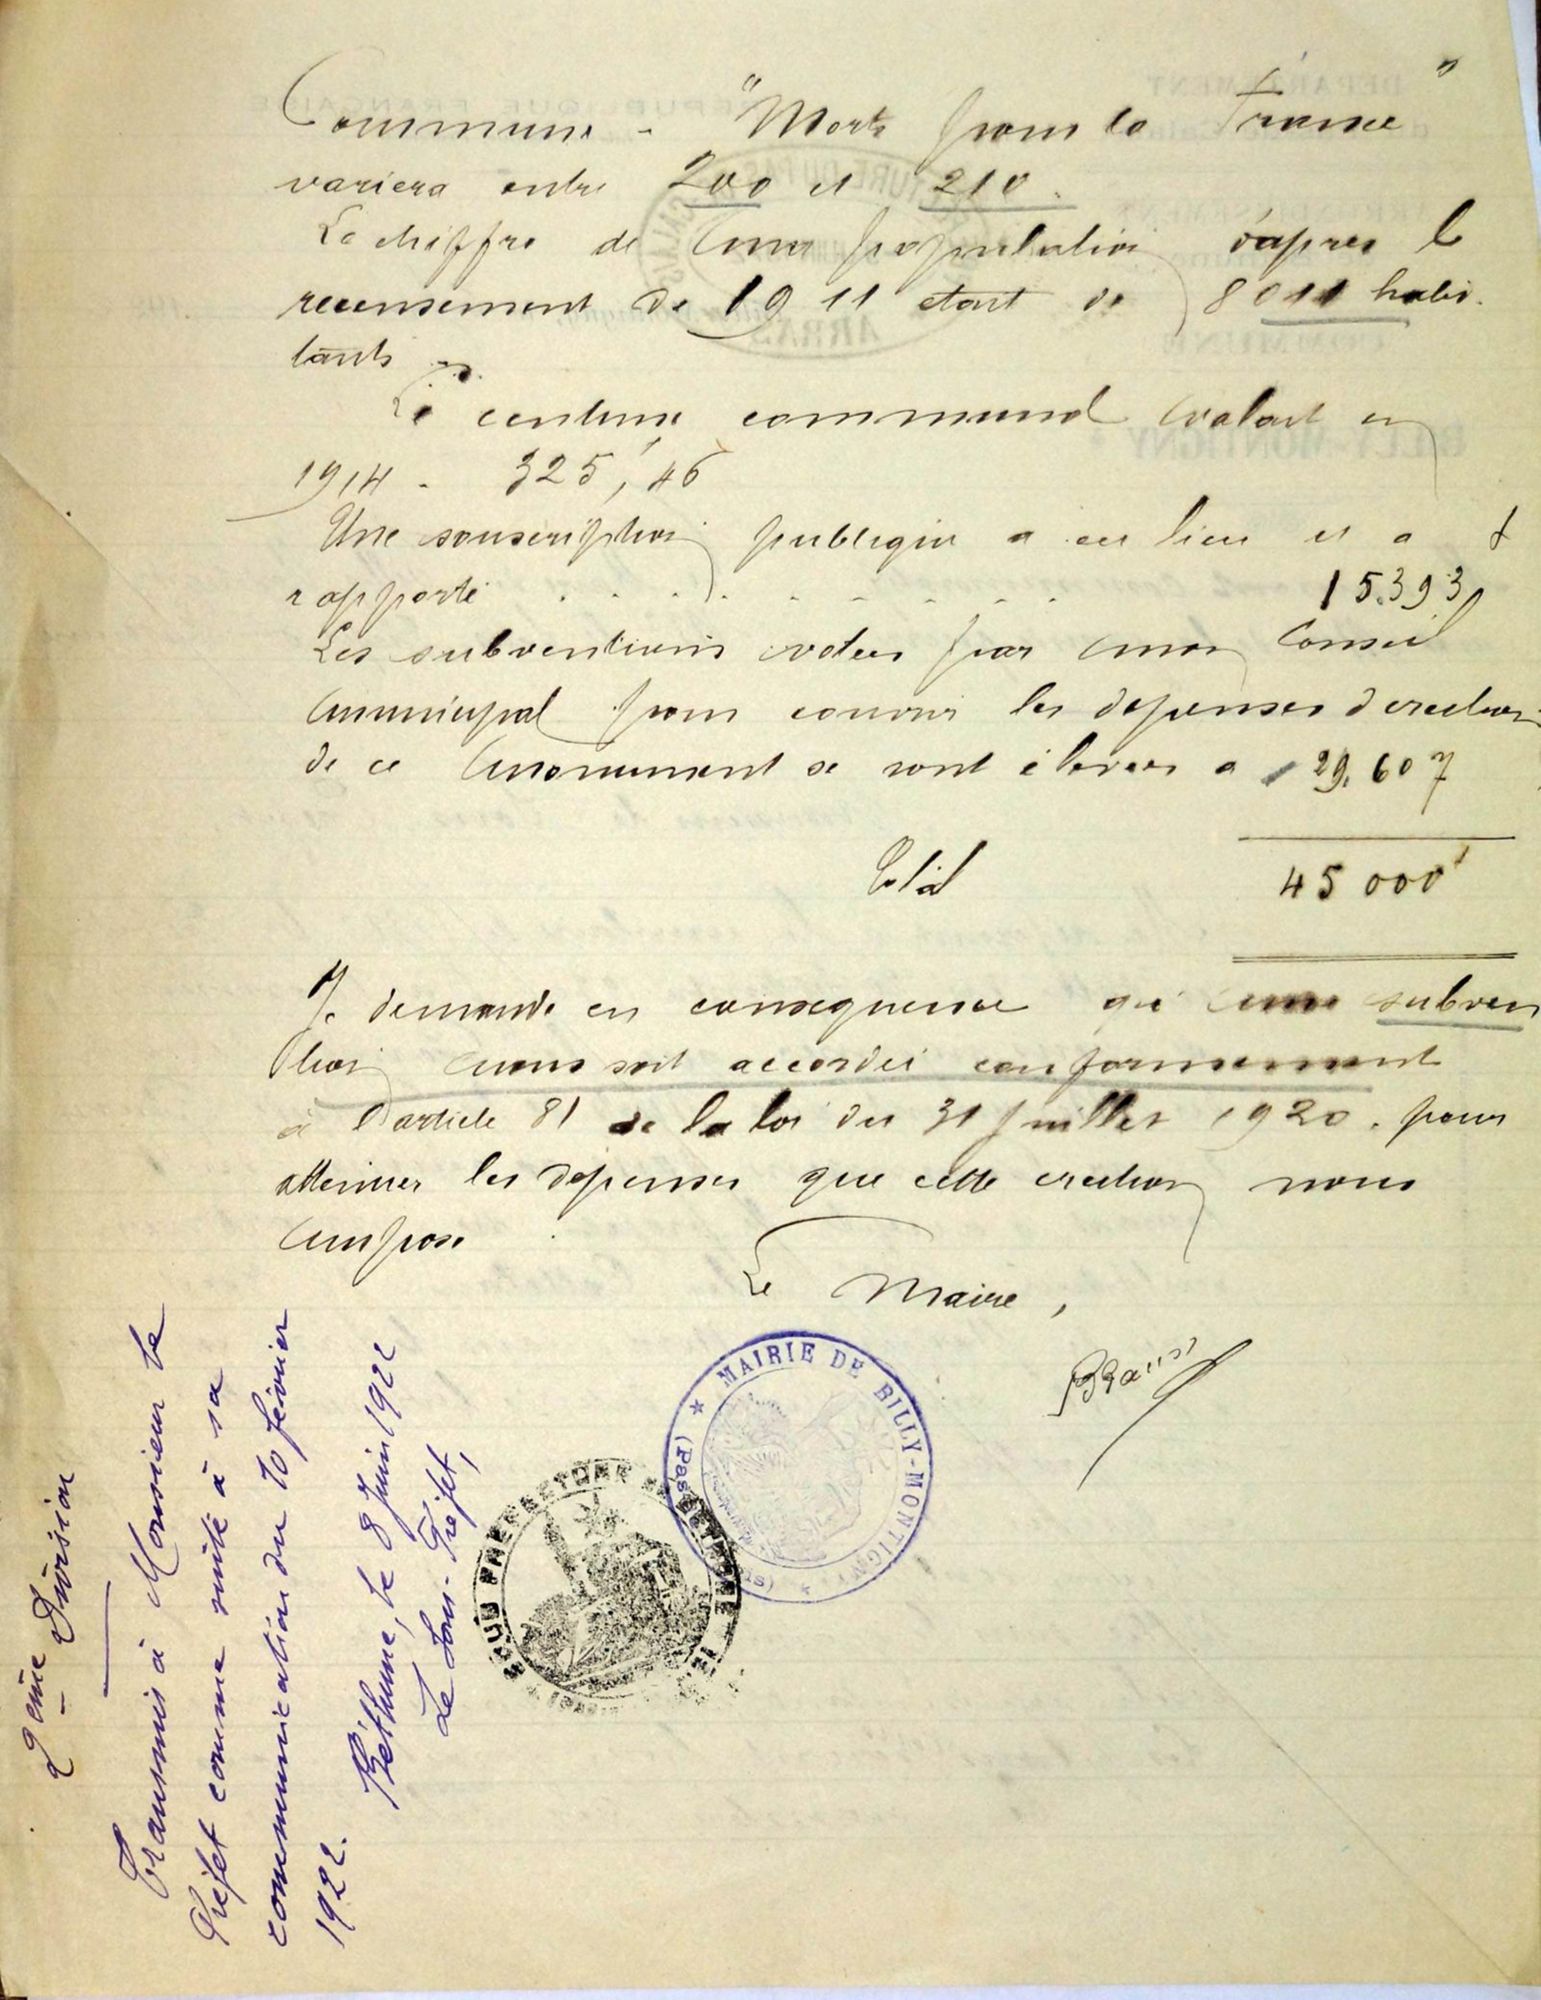 Commune - "Morts pour la France"
variera entre 200 et 210.
Le chiffre de ma population d'après le
recensement de 1911 était de 8011 habi-
tants.
Le centime communal valait en
1914 - 325f,46
Une souscription publique a eu lieu et a
rapporté . . . . . . . . . 15.393f
Les subventions votées par mon Conseil
municipal pour couvrir les dépenses d'érection
de ce monument se sont élevées à 29.607
Total 45 000f
Je demande en conséquence qu'une subven
tion nous soit accordée conformément
à l'article 81 de la loi du 31 Juillet 1920. pour
atténuer les dépenses que cette érection nous
impose.
Le Maire,
MAIRIE DE BILLY-MONTIGNY
(Pas
is)
SOUS PREFECTURE DE BETHUNE
2eme Division
Transmis à Monsieur le
Préfet comme suite à sa
communication du 10 février
1922.
Béthune, le 8 Juin 1922
Le Sous-Préfet,
DEPARTEMENT
REPUBLIQUE FRANÇAISE
ARRAS
COMMUNE
BILLY-MONTIGNY